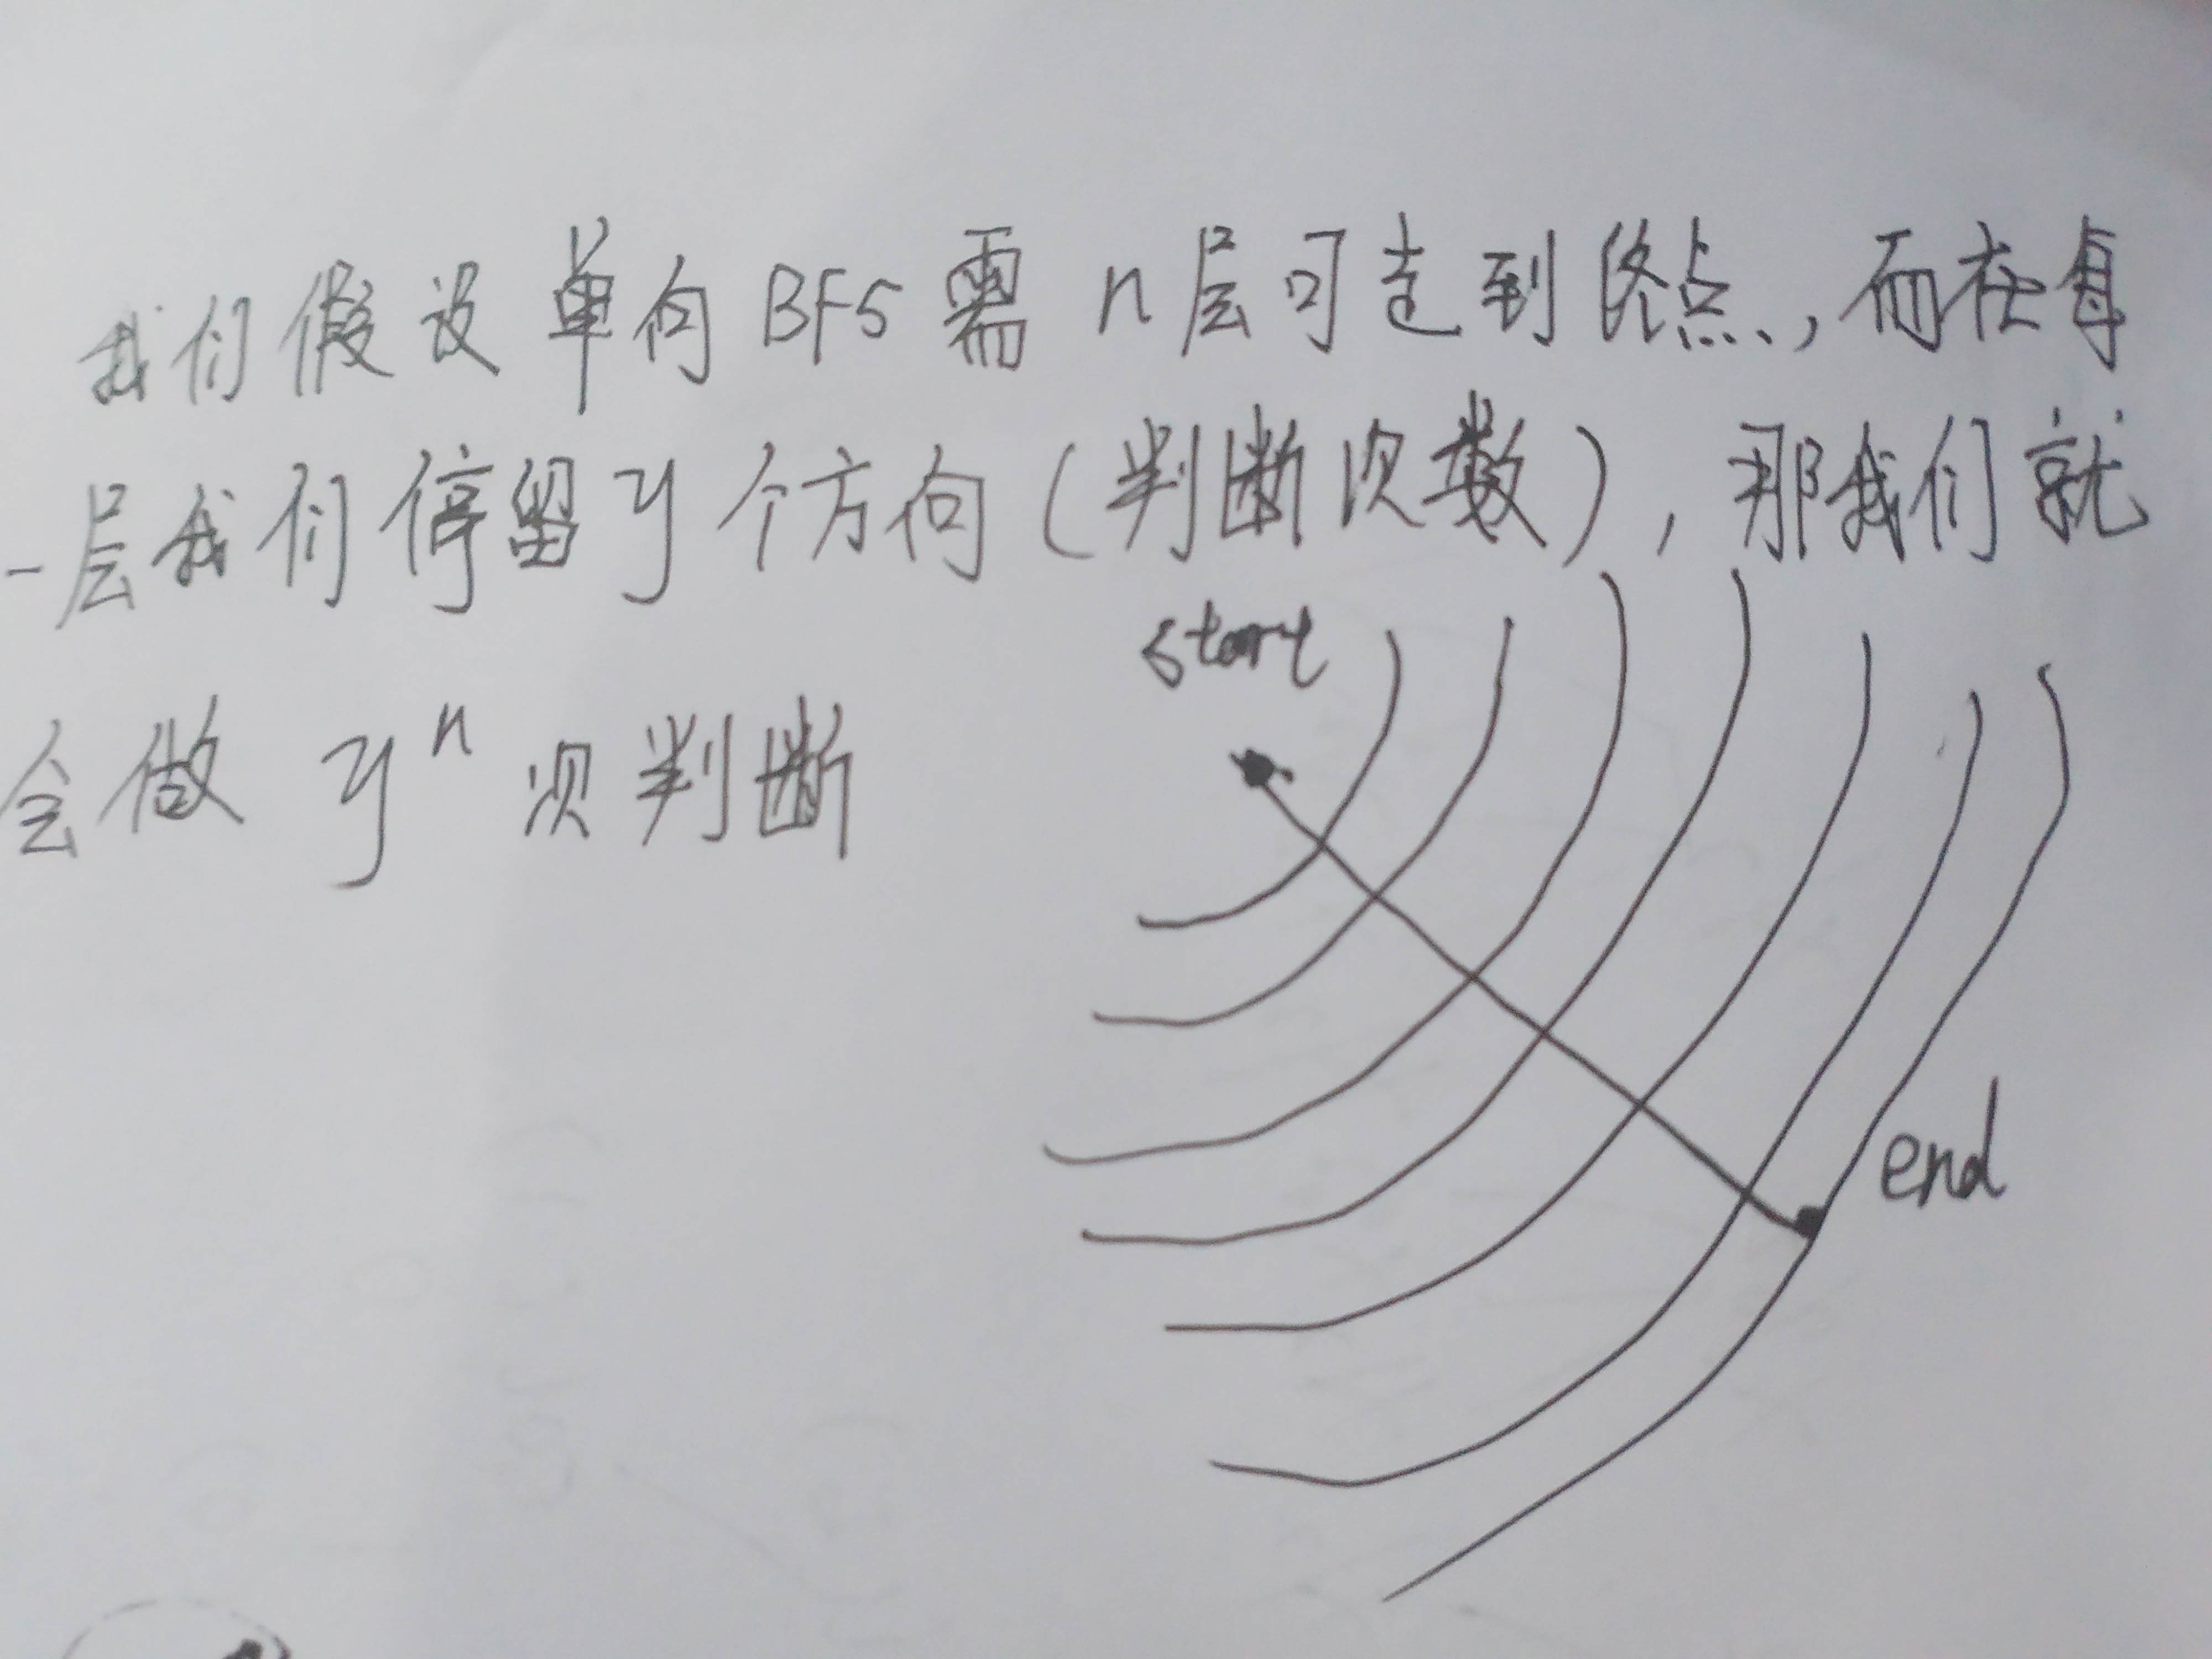 我们假设单向BFS需n层可走到终点,,而在每
一层我们停留y个方向(判断次数),那我们就
会做 yⁿ 次判断
start
end